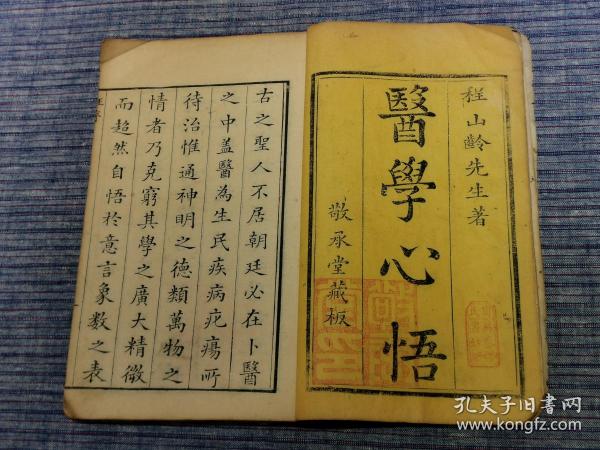 程山齡先生著
醫學心悟
敬承堂藏板
古之聖人不居朝廷必在卜醫
之中蓋醫為生民疾病疕瘍所
待治惟通神明之德類萬物之
情者乃克窮其學之廣大精微
而超然自悟於意言象數之表
孔夫子旧书网
www.kongfz.com